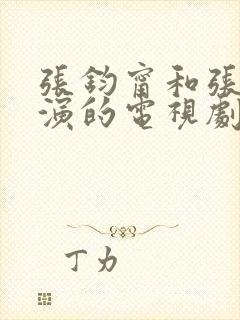 張鈞甯和張
演的電視劇
丁力